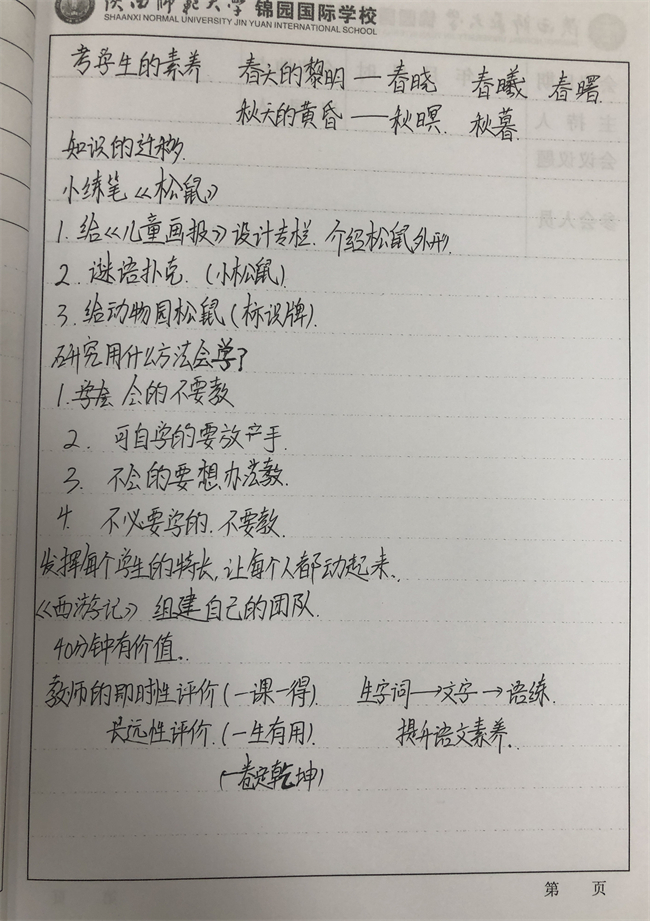 陕西师范大学 锦园国际学校
SHAANXI NORMAL UNIVERSITY JIN YUAN INTERNATIONAL SCHOOL
考学生的素养 春天的黎明——春晓 春曦 春曙
秋天的黄昏——秋暝 秋暮
知识的迁移
小练笔《松鼠》
1. 给《儿童画报》设计专栏. 介绍松鼠外形.
2. 谜语扑克. (小松鼠)
3. 给动物园松鼠(标识牌).
研究用什么方法会学?
1. 学会 会的不要教
2. 可自学的要放手.
3. 不会的要想办法教.
4. 不必要学的. 不要教.
发挥每个学生的特长, 让每个人都动起来.
《西游记》 组建自己的团队.
40分钟有价值.
教师的即时性评价(一课一得). 生字词→文字→语练.
长远性评价.(一生有用). 提升语文素养.
(一卷定乾坤)
第 页